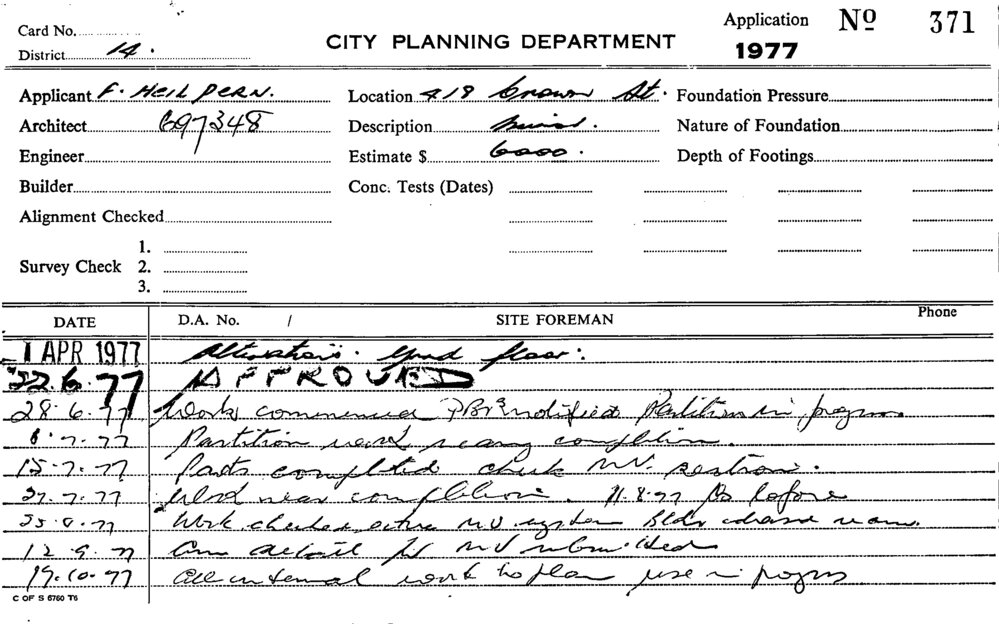 Card No.
District 14.
CITY PLANNING DEPARTMENT
Application Nº 371
1977
Applicant F. HEILPERN.
Location 418 Crown St.
Foundation Pressure
Architect 697348
Description
Nature of Foundation
Engineer
Estimate $ 6000.
Depth of Footings
Builder
Conc. Tests (Dates)
Alignment Checked
Survey Check
1.
2.
3.
DATE
D.A. No. /
SITE FOREMAN
Phone
1 APR 1977 Alterations. Grnd floor.
22.6.77 APPROVED
28.6.77 Work commenced notified Partition in progress
8.7.77 Partition work nearing completion.
15.7.77 Parts completed check M.V. section.
27.7.77 Work near completion. 11.8.77 As before
Work checked M.V. system Bldr
12.9.77 detail for M.V. submitted
19.10.77 All internal work to plan use in progress
C OF S 6760 T6